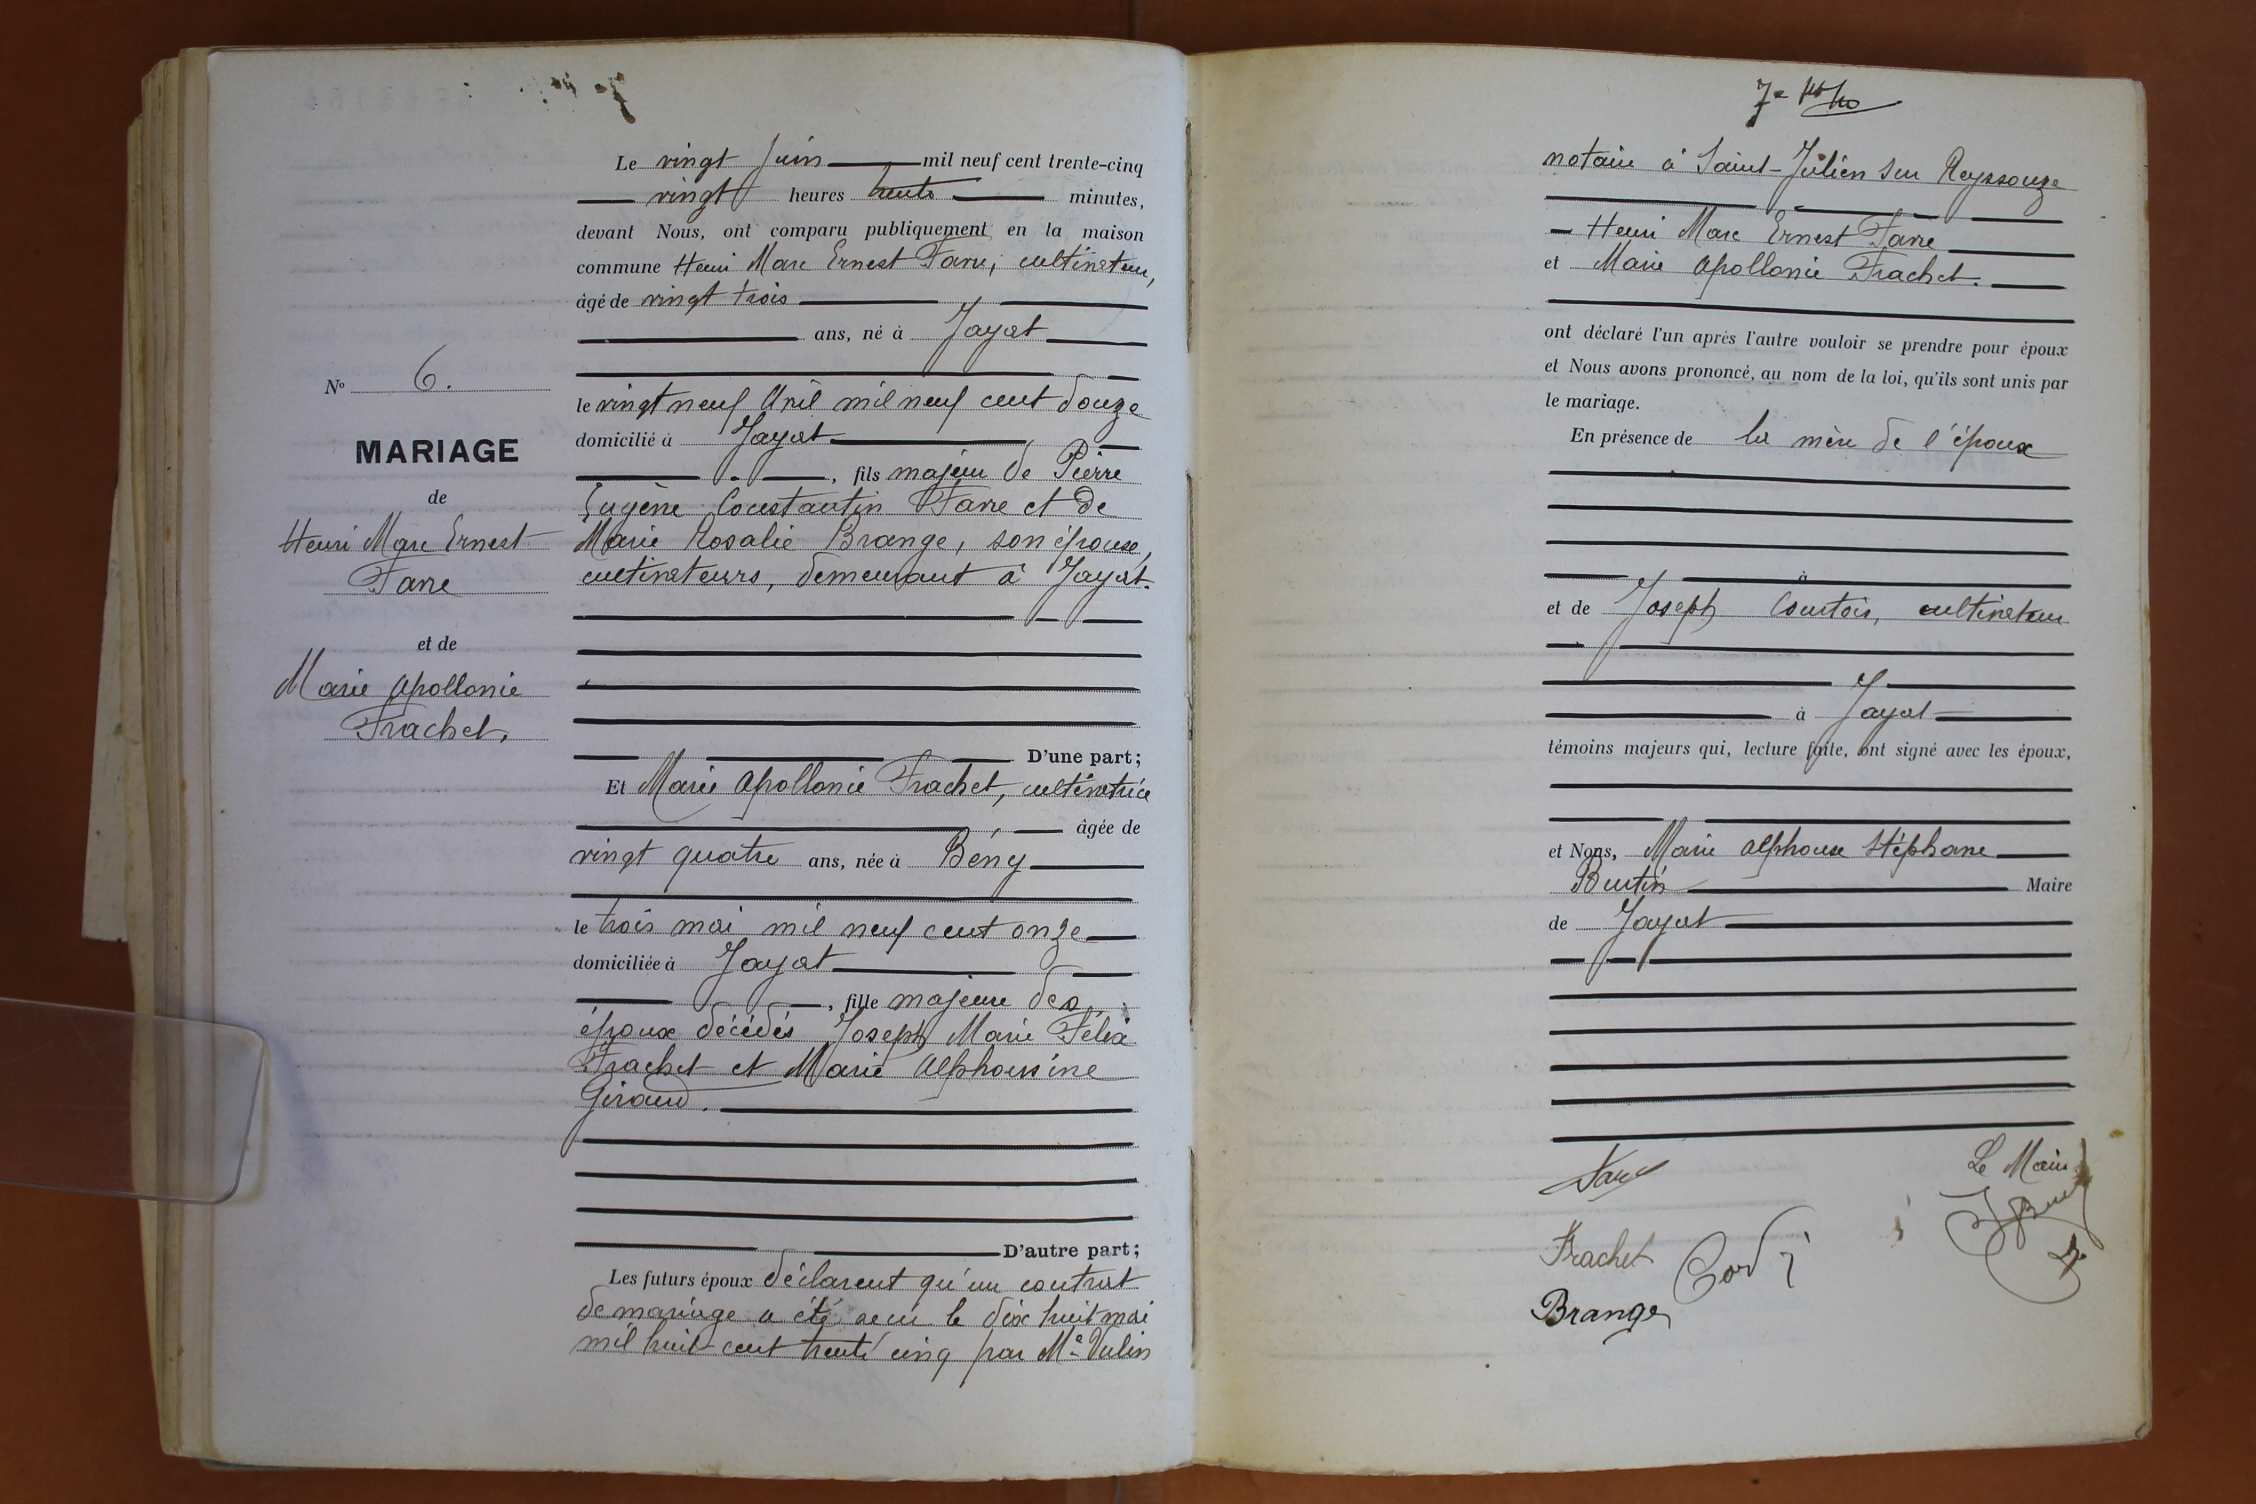 Le vingt Juin mil neuf cent trente-cinq
vingt heures trente minutes,
devant Nous, ont comparu publiquement en la maison
commune Henri Marc Ernest Favre, cultivateur,
âgé de vingt trois
ans, né à Jayat
le vingt neuf Avril mil neuf cent douze
domicilié à Jayat
, fils majeur de Pierre
Eugène Constantin Favre et de
Marie Rosalie Brange, son épouse,
cultivateurs, demeurant à Jayat.
D'une part;
Et Marie Apollonie Frachet, cultivatrice
âgée de
vingt quatre ans, née à Bény
le trois mai mil neuf cent onze
domiciliée à Jayat
, fille majeure des
époux décédés Joseph Marie Félix
Frachet et Marie Alphonsine
Giraud.
D'autre part;
Les futurs époux déclarent qu'un contrat
de mariage a été recu le dix huit mai
mil huit cent trente cinq par Me Vulin
No 6.
MARIAGE
de
Henri Marc Ernest
Favre
et de
Marie Apollonie
Frachet.
notaire à Saint-Julien sur Reyssouze
Henri Marc Ernest Favre
et Marie Apollonie Frachet.
ont déclaré l'un après l'autre vouloir se prendre pour époux
et Nous avons prononcé, au nom de la loi, qu'ils sont unis par
le mariage.
En présence de la mère de l'époux
à
et de Joseph Courtois, cultivateur
à Jayat
témoins majeurs qui, lecture faite, ont signé avec les époux,
et Nous, Marie Alphonse Stéphane
Burtin Maire
de Jayat
Le Maire
Favre
Frachet
Brange